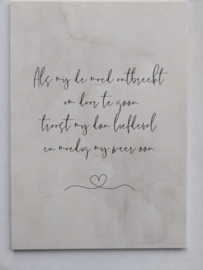 Als mij de moed ontbreekt
om door te gaan
troost mij dan liefdevol
en moedig mij weer aan